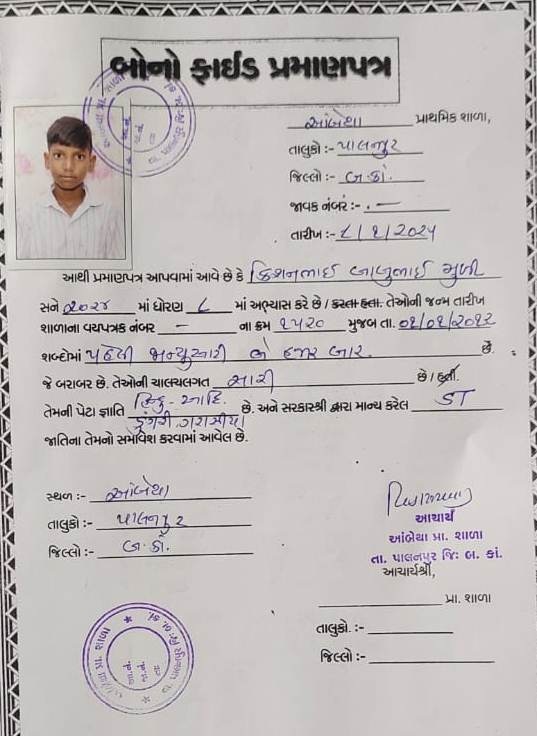 બોનો ફાઇડ પ્રમાણપત્ર
આંબેથા પ્રાથમિક શાળા,
તાલુકો :- પાલનપુર
જિલ્લો :- બ.કાં.
જાવક નંબર :- . —
તારીખ :- ૮/૧/2025
આથી પ્રમાણપત્ર આપવામાં આવે છે કે કિશનભાઈ બાબુભાઈ
સને ૨૦૨૪ માં ધોરણ ૮ માં અભ્યાસ કરે છે / કરતા હતા. તેઓની જન્મ તારીખ
શાળાના વયપત્રક નંબર — ના ક્રમ ૧૫૨૦ મુજબ તા. ૦૧/૦૧/૨૦૧૨
શબ્દોમાં પહેલી જાન્યુઆરી બે હજાર બાર. છે.
જે બરાબર છે. તેઓની ચાલચલગત સારી છે / હતી.
તેમની પેટા જ્ઞાતિ હિન્દુ - આદિ. છે. અને સરકારશ્રી દ્વારા માન્ય કરેલ ST
ડુંગરી ગરાસીયા
જાતિના તેમનો સમાવેશ કરવામાં આવેલ છે.
સ્થળ :- આંબેથા
તાલુકો :- પાલનપુર
જિલ્લો :- બ.કાં.
આચાર્ય
આંબેથા પ્રા. શાળા
તા. પાલનપુર જિઃ બ. કાં.
આચાર્યશ્રી,
પ્રા. શાળા
તાલુકો. :-
જિલ્લો :-